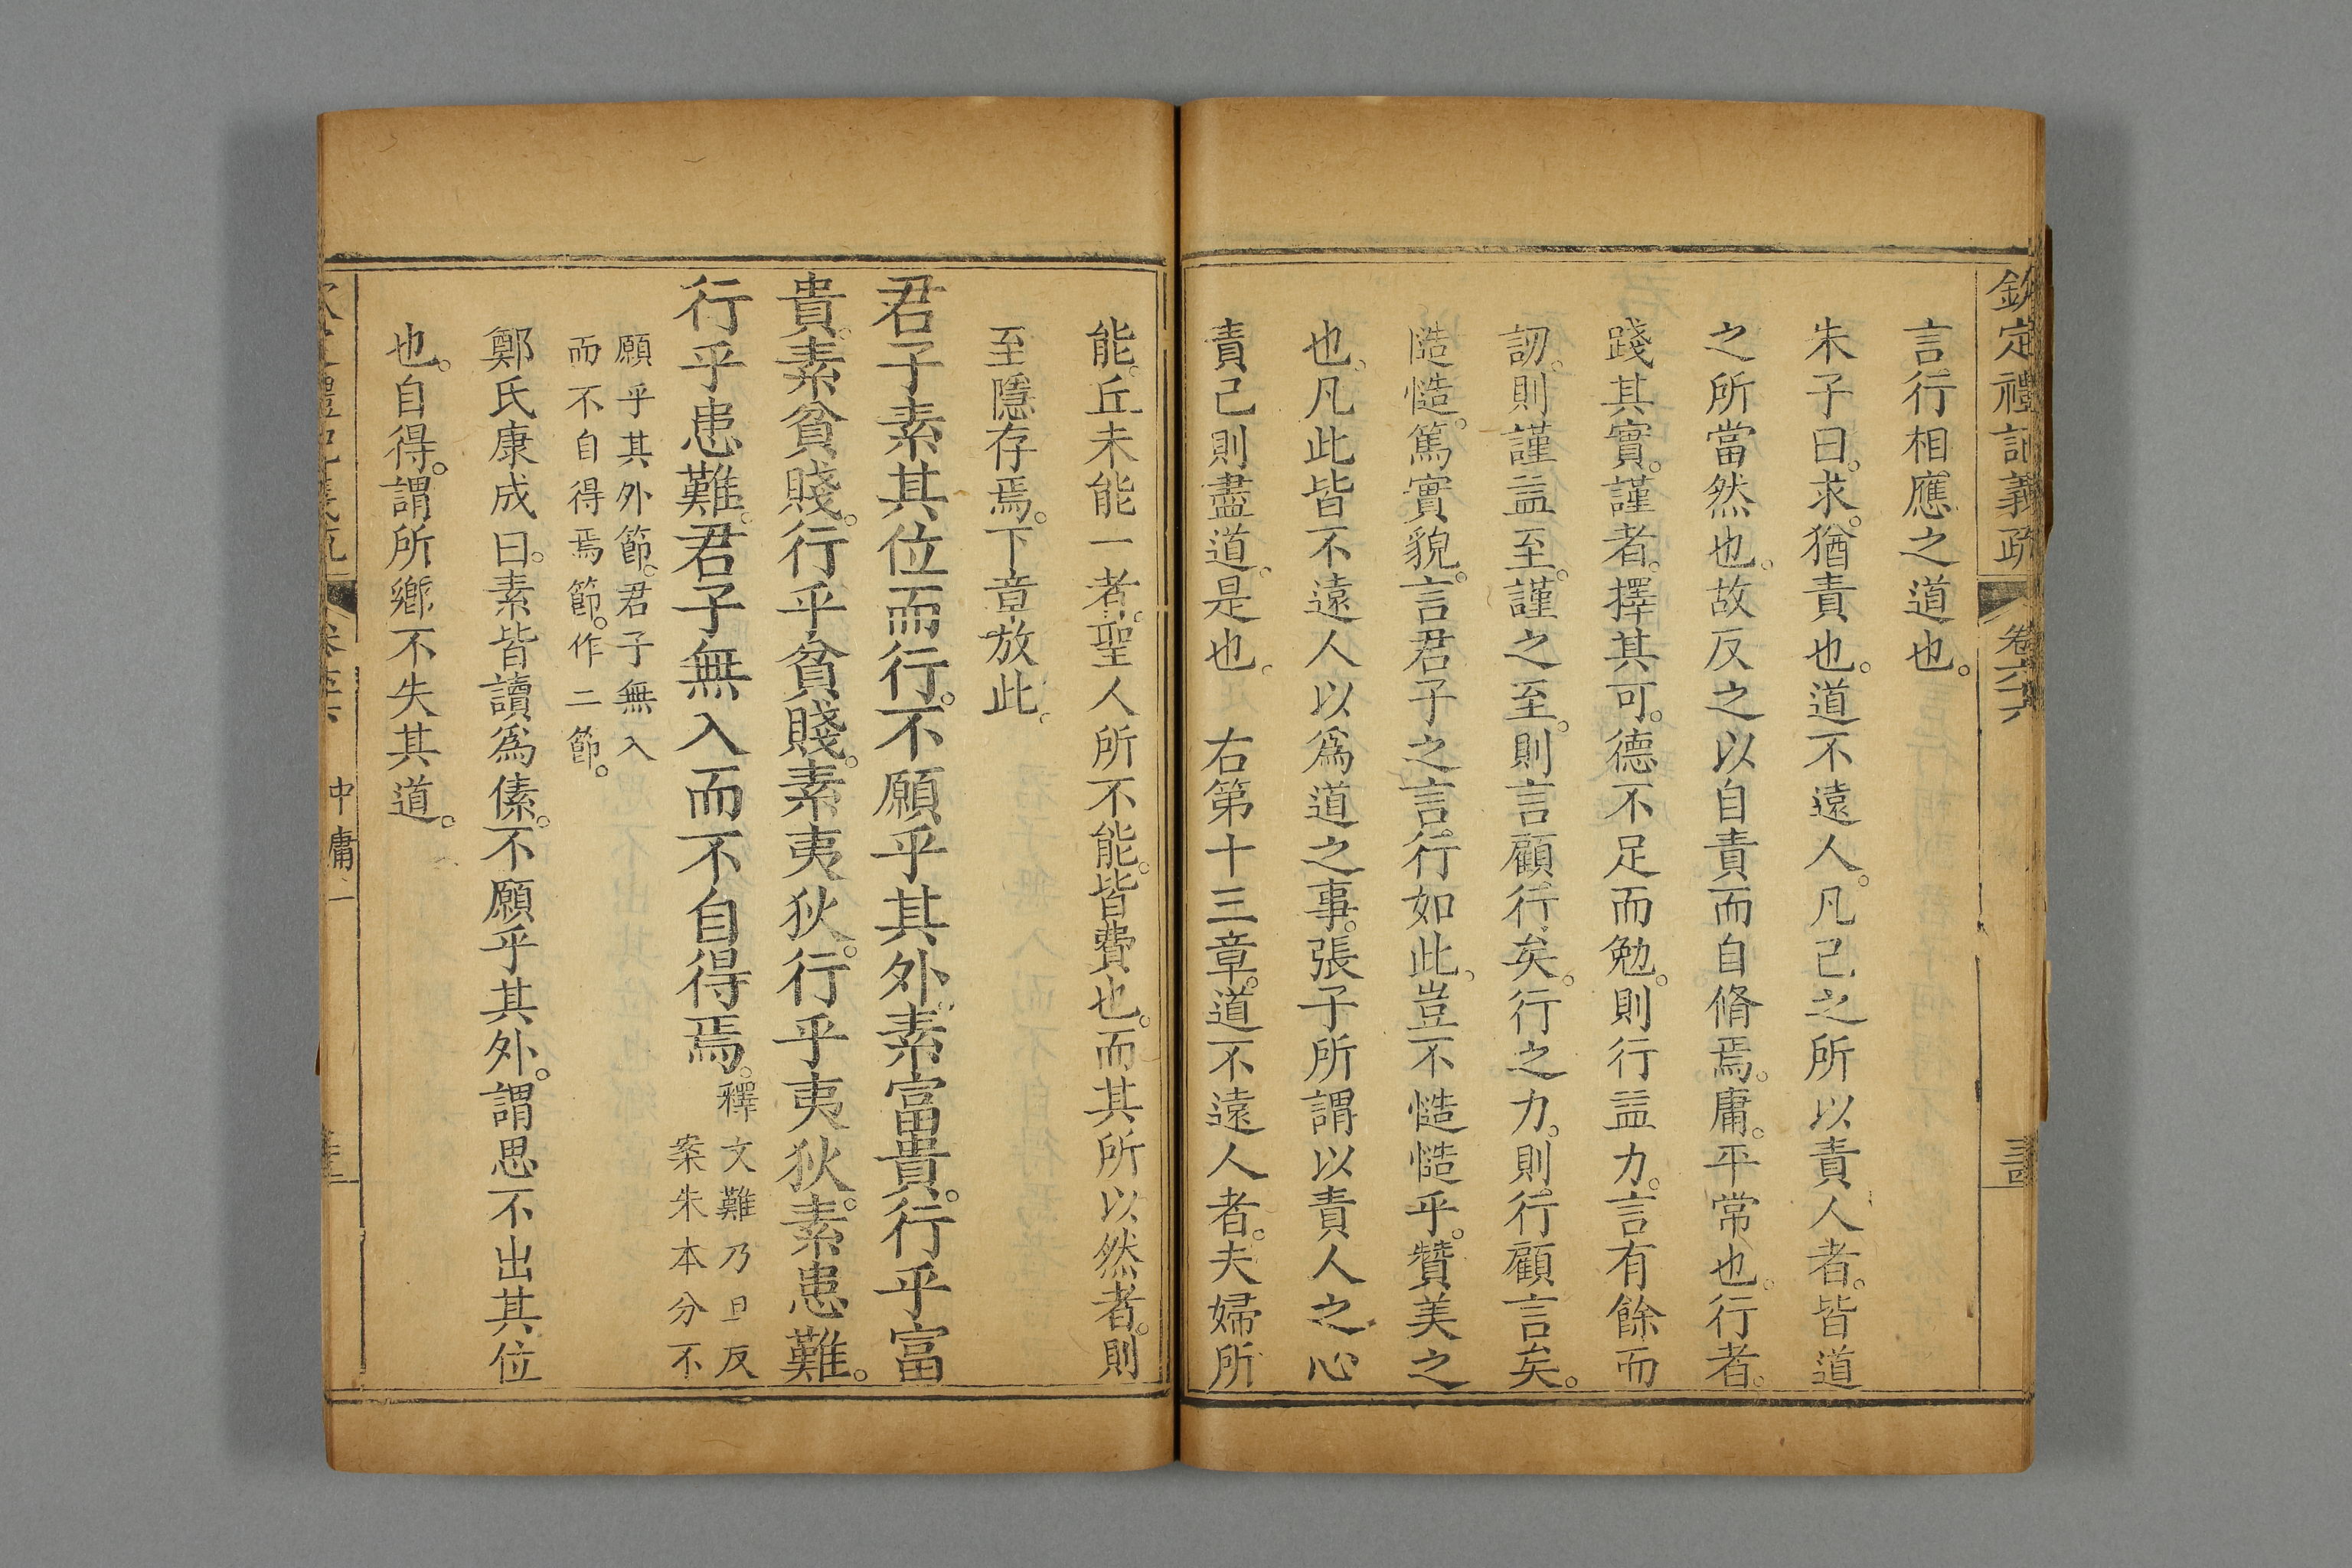 欽定禮記義疏 卷六十六
言行相應之道也。
朱子曰。求。猶責也。道不遠人。凡己之所以責人者。皆道
之所當然也。故反之以自責而自脩焉。庸。平常也。行者。
踐其實。謹者。擇其可。德不足而勉。則行益力。言有餘而
訒。則謹益至。謹之至。則言顧行矣。行之力。則行顧言矣。
慥慥。篤實貌。言君子之言行如此。豈不慥慥乎。贊美之
也。凡此皆不遠人以爲道之事。張子所謂以責人之心
責己則盡道。是也。 右第十三章。道不遠人者。夫婦所
能。丘未能一者。聖人所不能。皆費也。而其所以然者。則
至隱存焉。下章放此。
君子素其位而行。不願乎其外。素富貴。行乎富
貴。素貧賤。行乎貧賤。素夷狄。行乎夷狄。素患難。
行乎患難。君子無入而不自得焉。
釋文難乃旦反
案朱本分不
願乎其外節。君子無入
而不自得焉節。作二節。
鄭氏康成曰。素皆讀爲傃。不願乎其外。謂思不出其位
也。自得。謂所鄉不失其道。
中庸